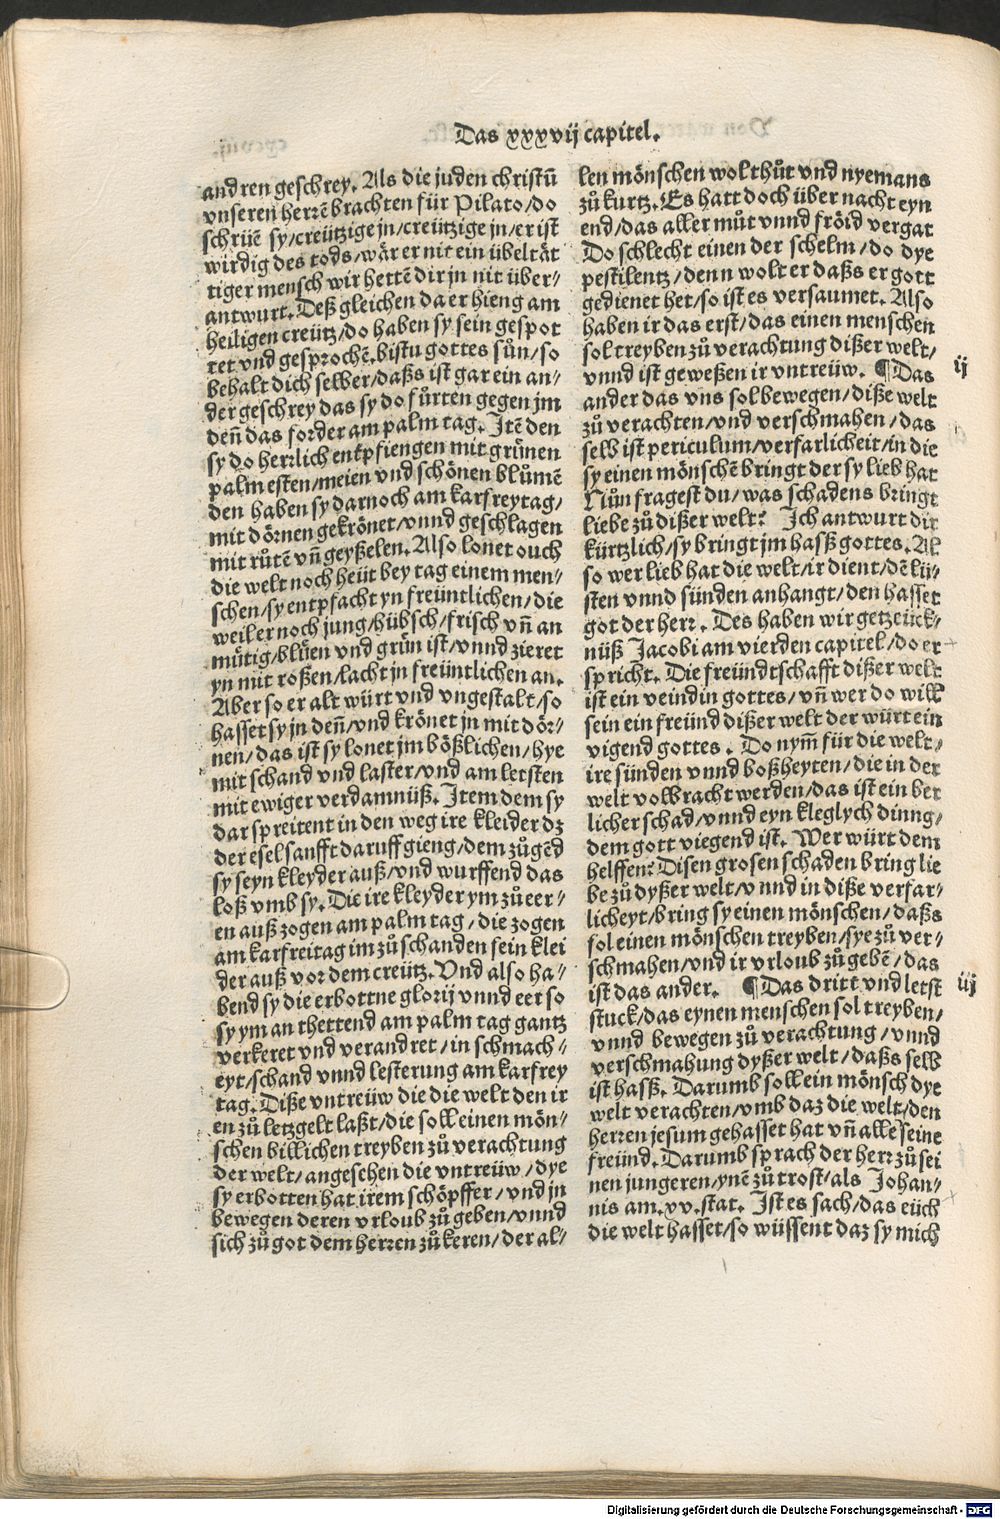 Das xxxvij capitel.
andren geschrey. Als die juden christū
vnseren herrē brachten für Pilato/do
schriiē sy/creützige jn/creützige jn/er ist
wirdig des tods/wär er nit ein übeltät
tiger mensch wir hettē dir jn nit über⸗
antwurt. Deß gleichen da er hieng am
heiligen creütz/do haben sy sein gespot
tet vnd gesprochē. bistu gottes sůn/so
behalt dich selber/daß ist gar ein an⸗
der geschrey das sy do fůrten gegen jm
deñ das forder am palm tag. Itē den
sy do herrlich entpfiengen mit grünen
palm esten/meien vnd schönen blůmē
den haben sy darnoch am karfreytag/
mit dörnen gekrönet/vnnd geschlagen
mit růtē vñ geyßelen. Also lonet ouch
die welt noch heüt bey tag einem men⸗
schen/sy entpfacht yn freüntlichen/die
weil er noch jung/hübsch/frisch vñ an
mütig/blüen vnd grün ist/vnnd zieret
yn mit roßen/lacht jn freüntlichen an.
Aber so er alt würt vnd vngestalt/so
hasset sy jn deñ/vnd krönet jn mit dör⸗
nen/das ist sy lonet jm bößlichen/hye
mit schand vnd laster/vnd am letsten
mit ewiger verdamnüß. Item dem sy
dar spreitent in den weg ire kleider dz
der esel sanfft daruff gieng/dem zůgēd
sy seyn kleyder auß/vnd wurffend das
loß vmb sy. Die ire kleyder ym zů eer⸗
en auß zogen am palm tag/die zogen
am karfreitag im zů schanden sein klei
der auß vor dem creütz. Vnd also ha⸗
bend sy die erbottne glorij vnnd eer so
sy ym an thettend am palm tag gantz
verkeret vnd verandret/in schmach⸗
eyt/schand vnnd lesterung am karfrey
tag. Diße vntreüw die die welt den ir
en zů letzgelt laßt/die soll einen mön⸗
schen billichen treyben zů verachtung
der welt/angesehen die vntreüw/dye
sy erbotten hat irem schöpffer/vnd jn
bewegen deren vrloub zů geben/vnnd
sich zů got dem herren zů keren/der al⸗
len mönschen wol thůt vnd nyemans
zů kurtz. Es hatt doch über nacht eyn
end/das aller můt vnnd fröid vergat
Do schlecht einen der schelm/do dye
pestilentz/denn wolt er daßs er gott
gedienet het/so ist es versaumet. Also
haben ir das erst/das einen menschen
sol treyben zů verachtung dißer welt/
vnnd ist geweßen ir vntreüw. ¶Das
ij
ander das vns sol bewegen/diße welt
zů verachten/vnd verschmahen/das
selb ist periculum/verfarlicheit/in die
sy einen mönschē bringt der sy lieb hat
Nůn fragest du/was schadens bringt
liebe zů dißer welt? Ich antwurt dir
kürtzlich/sy bringt jm hasß gottes. Al
so wer lieb hat die welt/ir dient/dē lü⸗
sten vnnd sünden anhangt/den hasset
got der herr. Des haben wir getzeück⸗
nüß Jacobi am vierden capitel/do er
spricht. Die freündtschafft dißer welt
ist ein veindin gottes/vñ wer do will
sein ein freünd dißer welt der würt ein
vigend gottes. Do nym̃ für die welt⸗
ire sünden vnnd boßheyten/die in der
welt volbracht werden/das ist ein ber
licher schad/vnnd eyn kleglych dinng⸗
dem gott viegend ist. Wer würt dem
helffen? Disen grosen schaden bring lie
be zů dyßer welt/vnnd in diße verfar⸗
licheyt/bring sy einen mönschen/daßs
sol einen mönschen treyben/sye zů ver⸗
schmahen/vnd ir vrloub zů gebē/das
ist das ander. ¶Das dritt vnd letst
iij
stuck/das eynen menschen sol treyben/
vnnd bewegen zů verachtung/vnnd
verschmahung dyßer welt/daßs selb
ist hasß. Darumb soll ein mönsch dye
welt verachten/vmb daz die welt/den
herren jesum gehasset hat vñ alle seine
freünd. Darumb sprach der herr zů sei
nen jungeren/ynē zů trost/als Johan⸗
nis am .xv. stat. Ist es sach/das eüch
die welt hasset/so wüssent daz sy mich
Digitalisierung gefördert durch die Deutsche Forschungsgemeinschaft - DFG